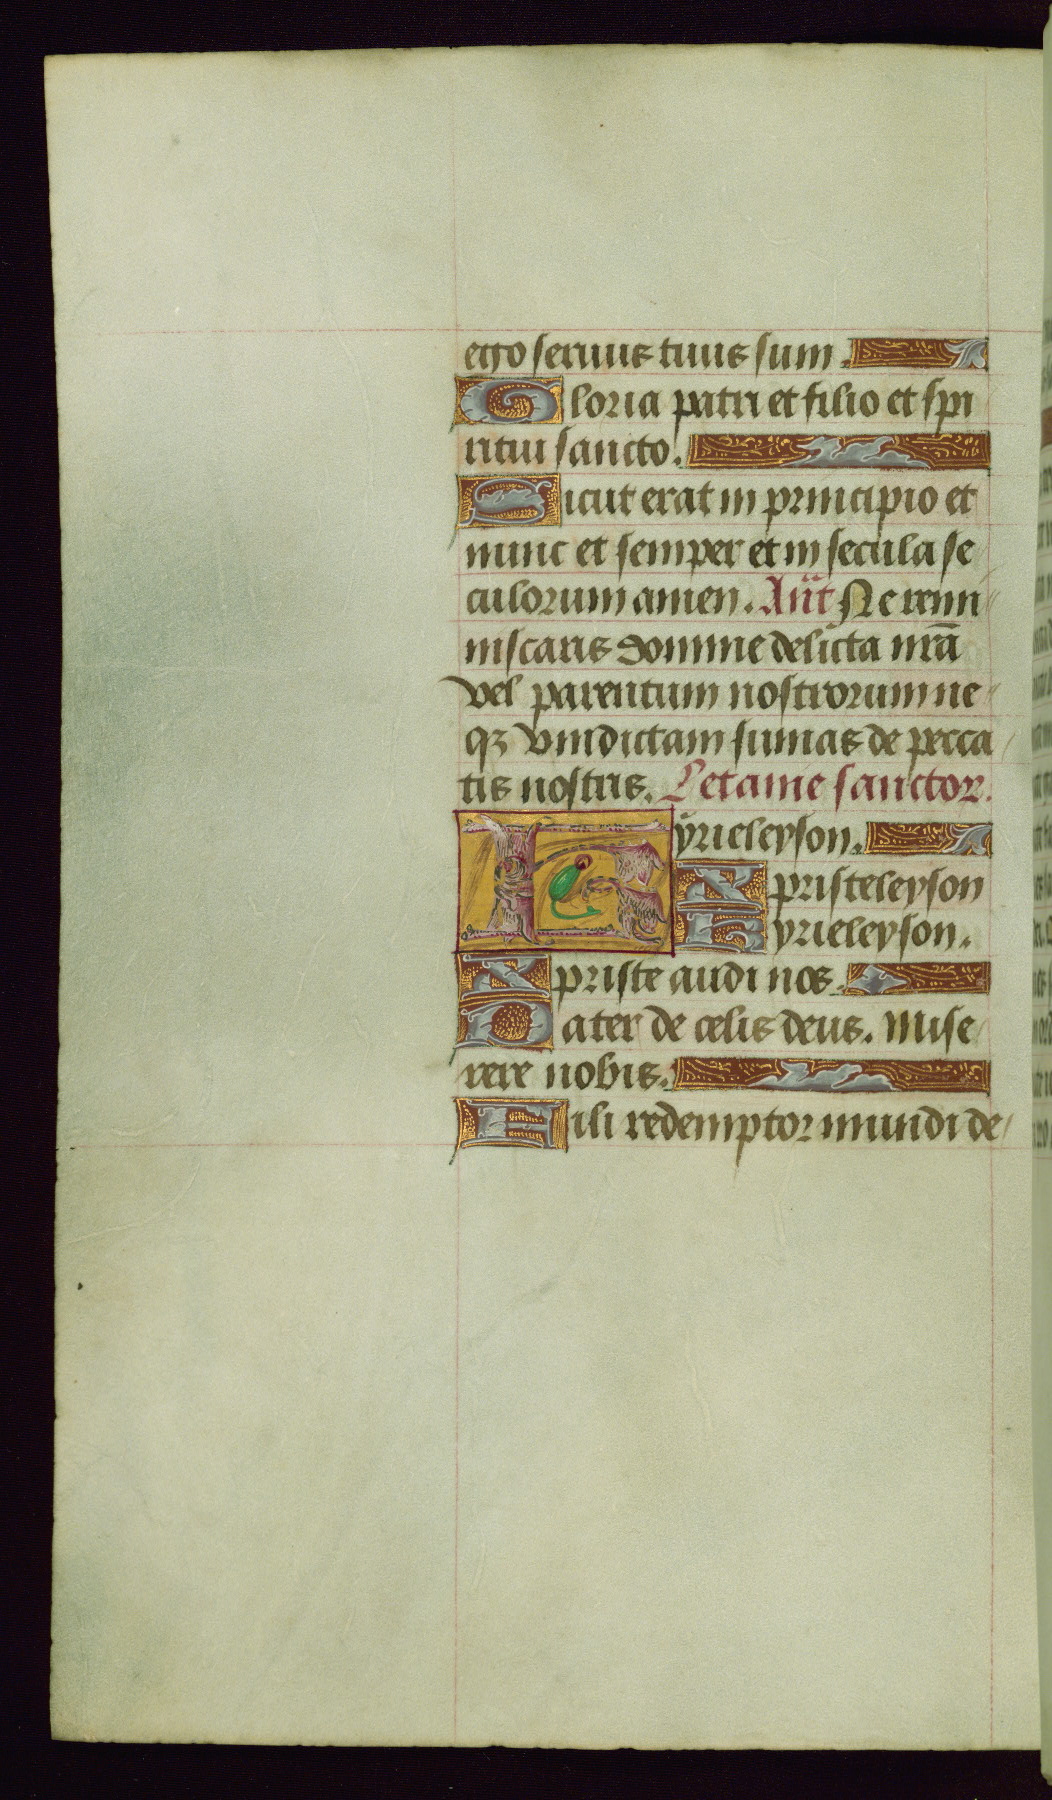 ego seruus tuus sum.
Gloria patri et filio et spi
ritui sancto.
Sicut erat in principio et
nunc et semper et in secula se
culorum amen. Añt Ne remi
niscaris domine delicta nrā
vel parentum nostrorum ne
qꝫ vindictam sumas de pecca
tis nostris. Letanie sanctor.
Kyrieleyson.
Xpristeleyson
Kyrieleyson.
Xpriste audi nos.
Pater de celis deus. Mise
rere nobis.
Fili redemptor mundi de